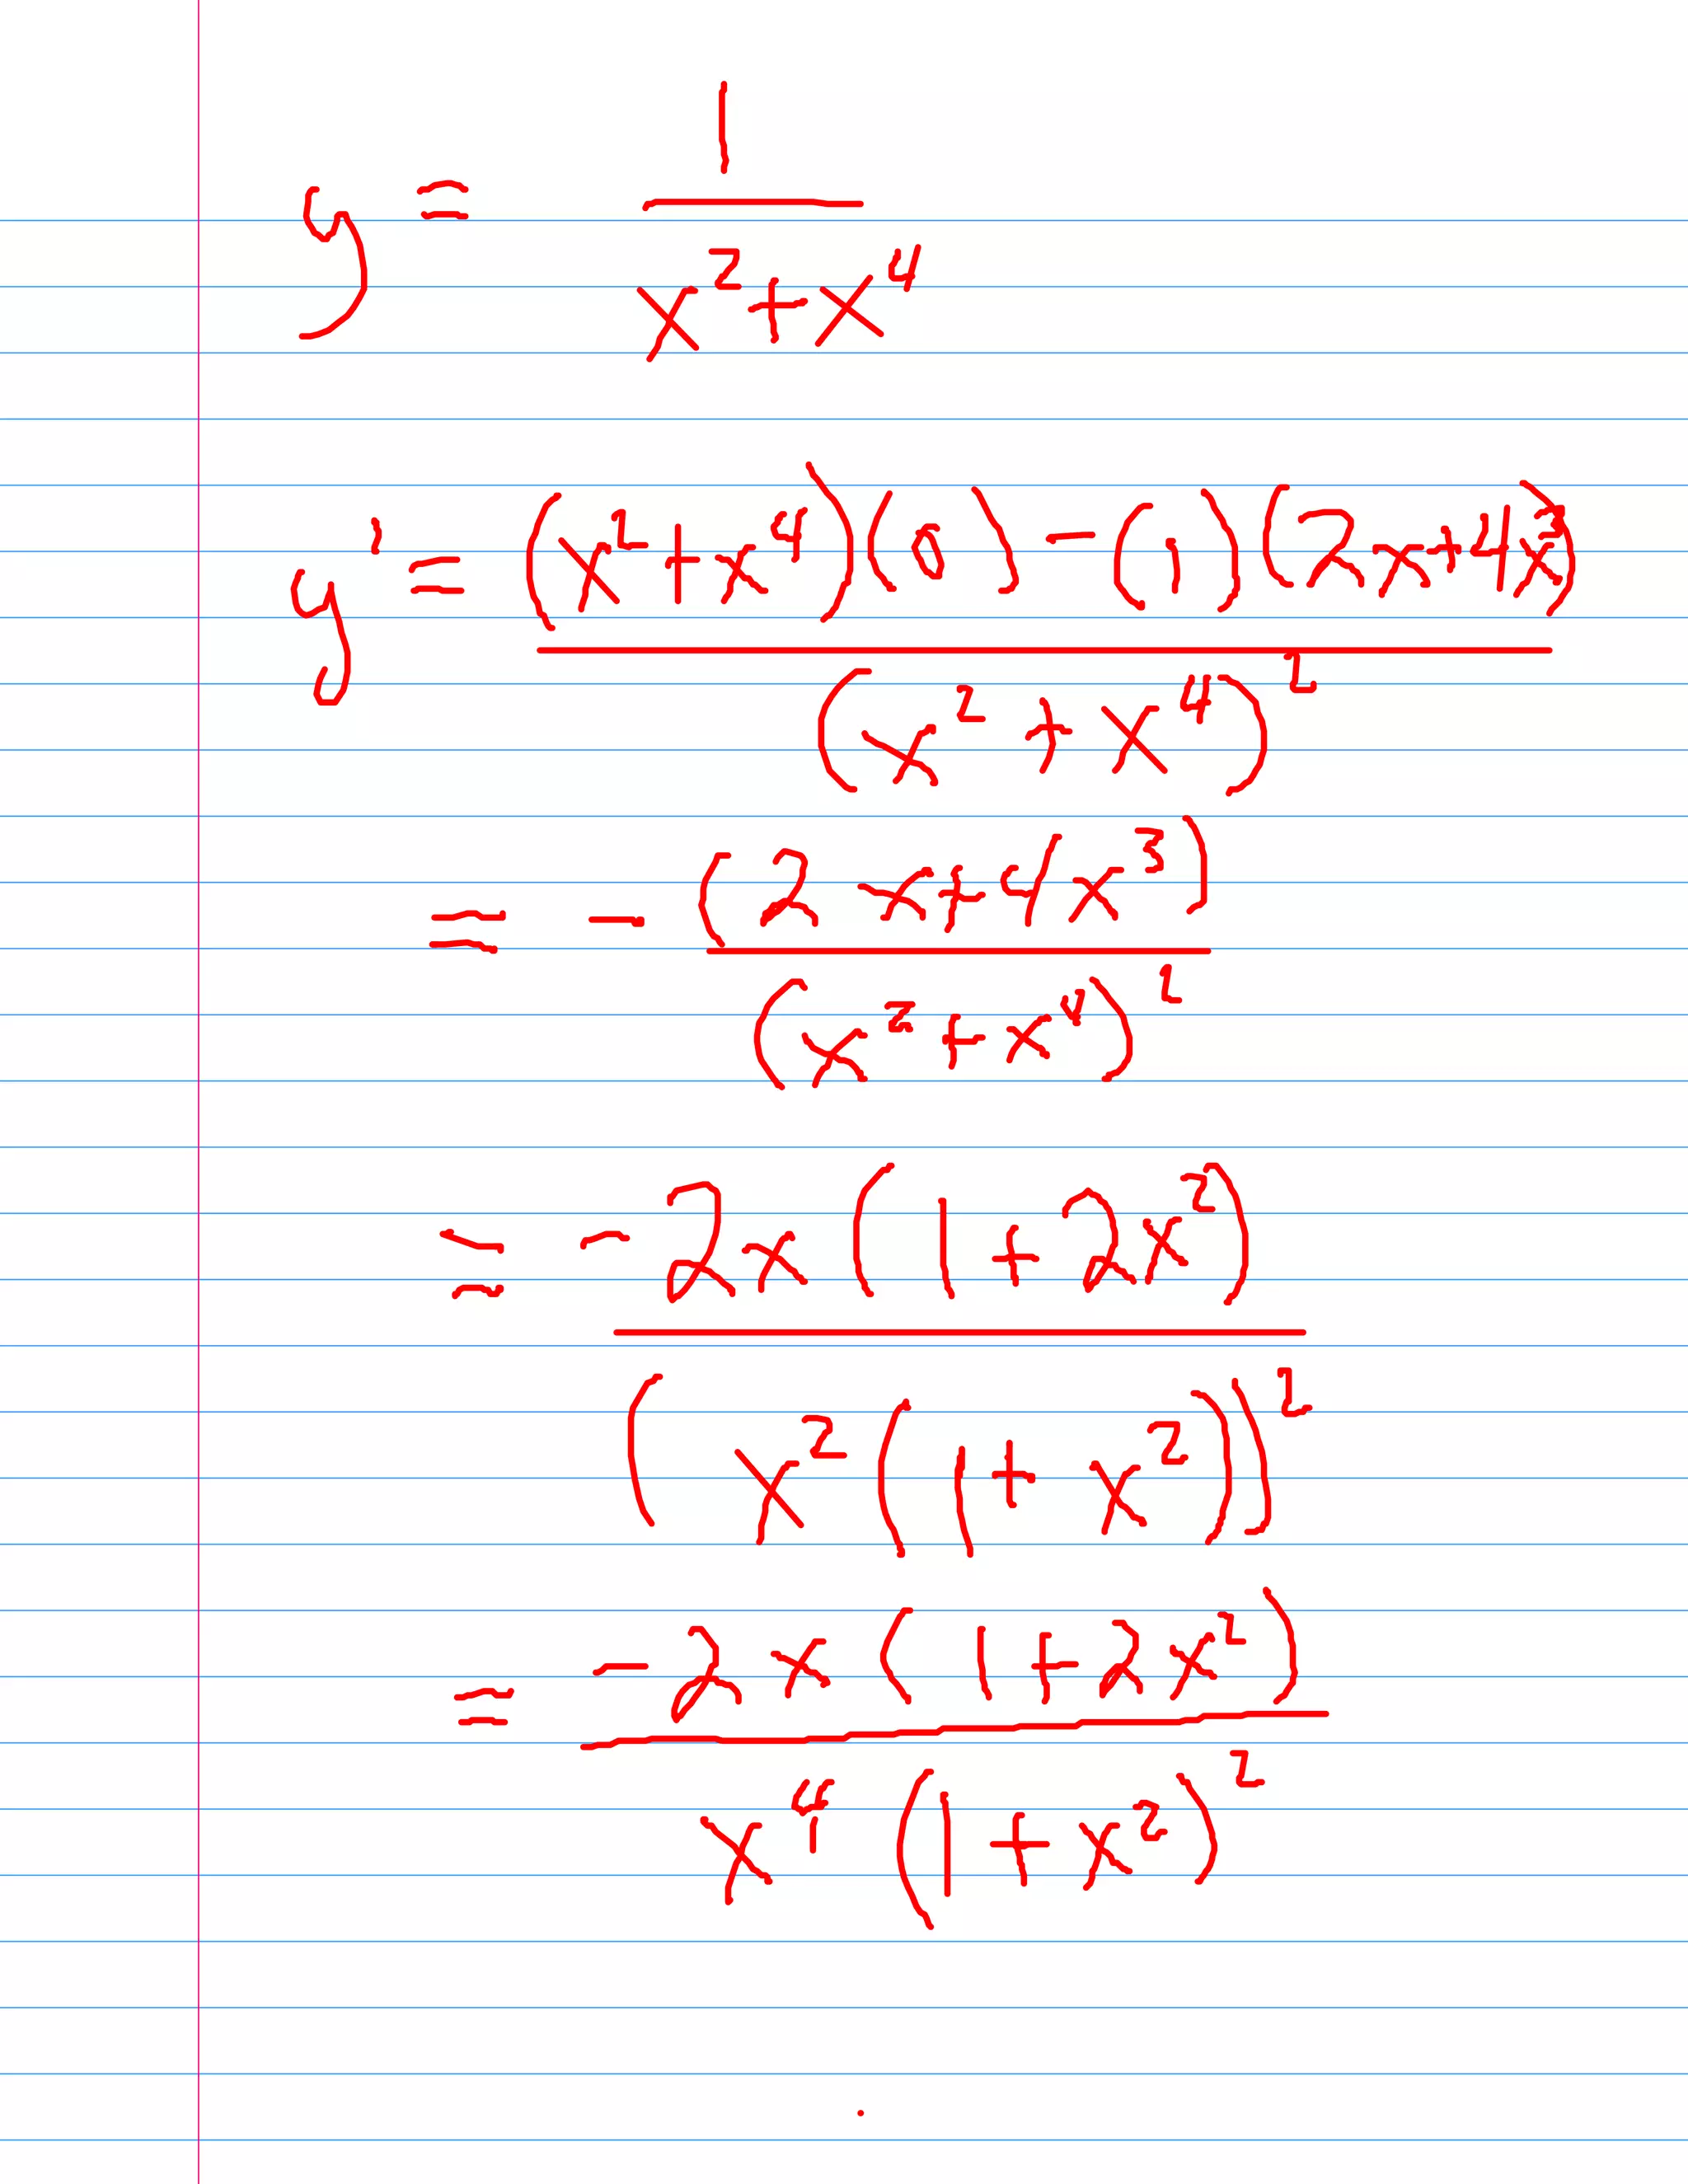 y = 1 / (x² + x⁴)
y' = (x² + x⁴)(0) - (1)(2x + 4x³) / (x² + x⁴)²
= -(2x + 4x³) / (x² + x⁴)²
= -2x(1 + 2x²) / (x²(1 + x²))²
= -2x(1 + 2x²) / x⁴(1 + x²)²